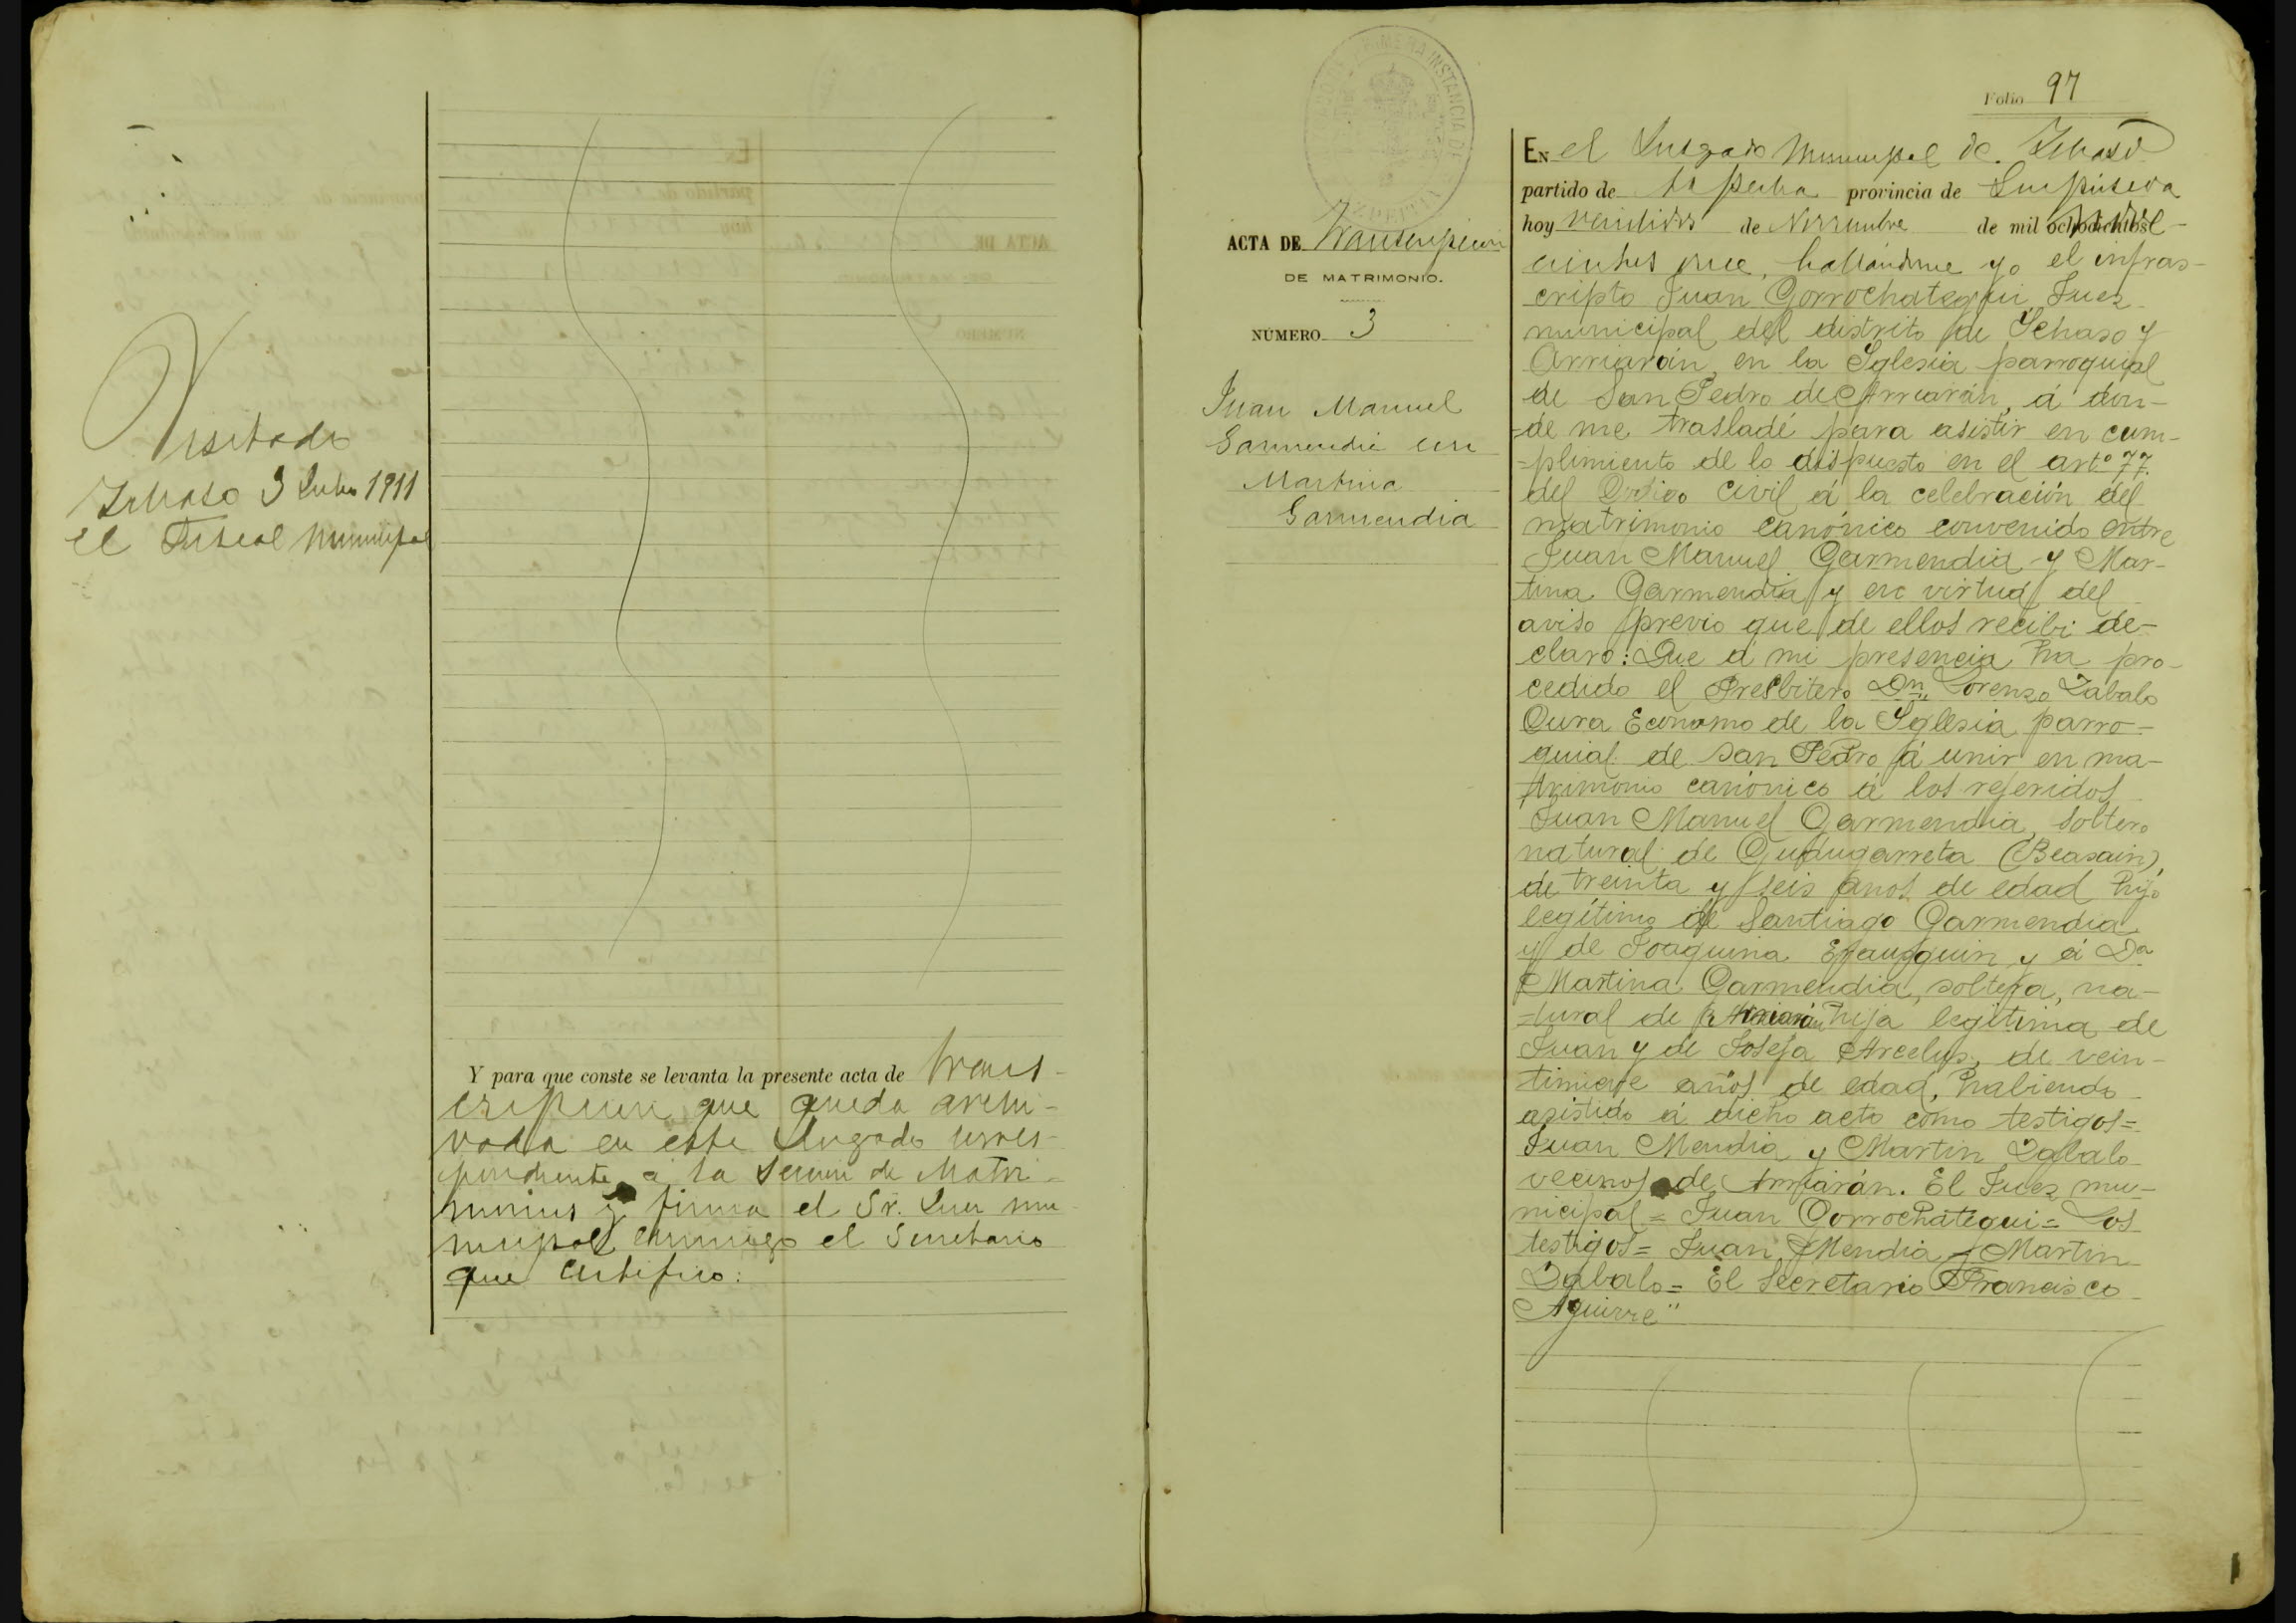 Visitado
Ichaso 3 Julio 1911
El Fiscal Municipal
Y para que conste se levanta la presente acta de trans-
cripcion que queda archi-
vada en este Juzgado corres-
pondiente a la Seccion de Matri-
monios y firma el Sr. Juez mu-
nicipal conmigo el Secretario
que certifico:
JUZGADO DE PRIMERA INSTANCIA DE AZPEITIA
Folio 97
ACTA DE Transcripcion
DE MATRIMONIO.
NÚMERO 3
Juan Manuel
Garmendia con
Martina
Garmendia
En el Juzgado Municipal de Ichaso
partido de Azpeitia provincia de Guipúzcoa
hoy veintidos de Noviembre de mil ochocientos
cientos once, hallándome yo el infras-
cripto Juan Gorrochategui Juez
municipal del distrito de Ichaso y
Arriarán, en la Iglesia parroquial
de San Pedro de Arriarán, á dón-
=de me trasladé para asistir en cum-
=plimiento de lo dispuesto en el artº 77.
del Codigo civil á la celebración del
matrimonio canónico convenido entre
Juan Manuel Garmendia y Mar-
tina Garmendia y en virtud del
aviso previo que de ellos recibi de-
claro: Que á mi presencia ha pro-
cedido el Presbitero Dn Lorenzo Zabalo
Cura Economo de la Iglesia parro-
quial de San Pedro á unir en ma-
trimonio canónico á los referidos
Juan Manuel Garmendia, soltero
natural de Gudugarreta (Beasain),
de treinta y seis años de edad hijo
legítimo de Santiago Garmendia
y de Joaquina Ejausquin y á Da
Martina Garmendia, soltera, na-
=tural de Arriarán hija legítima de
Juan y de Josefa Arcelus, de vein-
tinueve años de edad, habiendo
asistido á dicho acto como testigos=
Juan Mendia y Martin Zabalo
vecinos de Arriarán. El Juez mu-
nicipal = Juan Gorrochategui = Los
testigos = Juan Mendia y Martin
Zabalo = El Secretario Francisco
Aguirre"